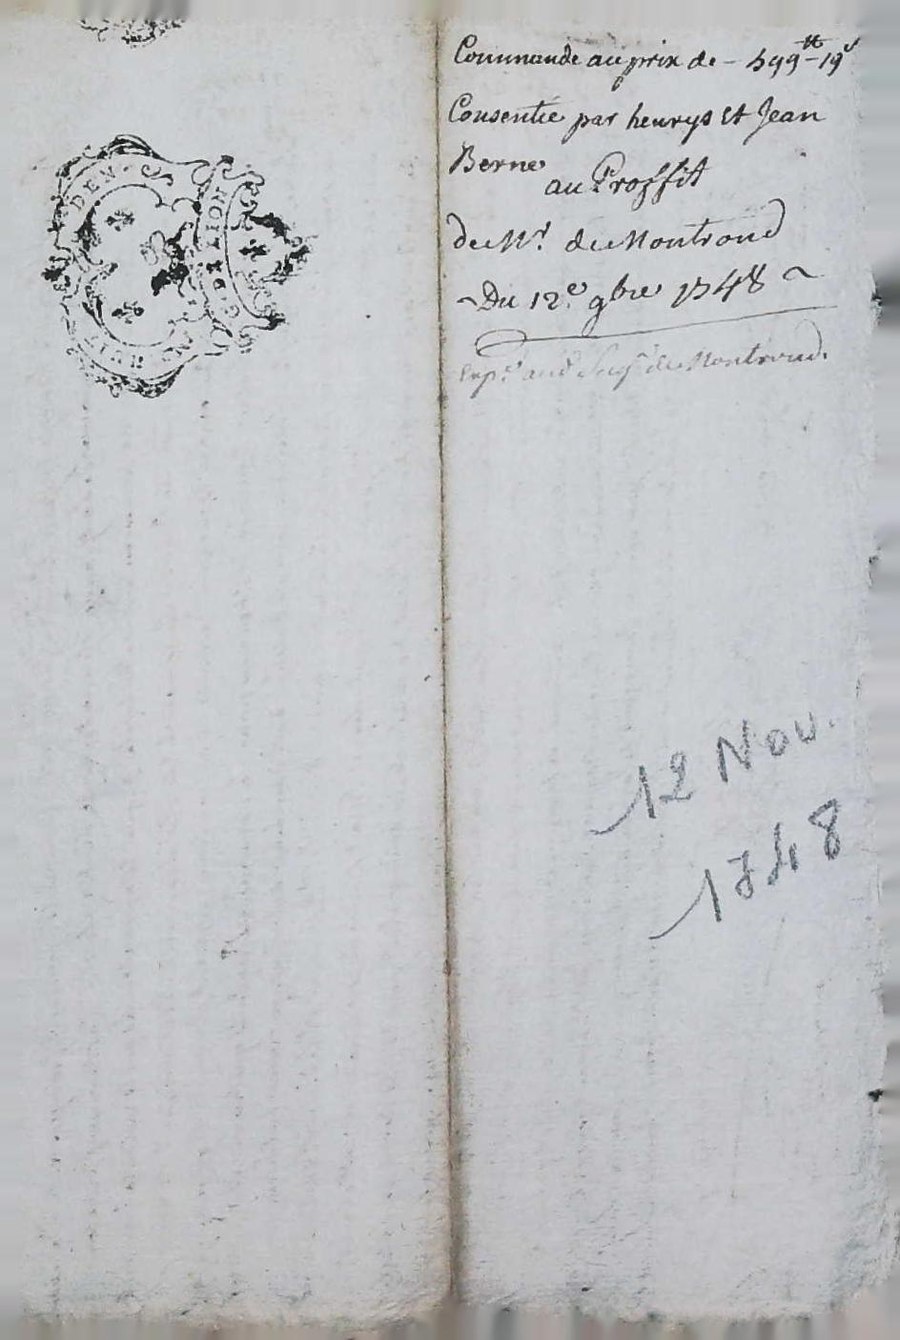 DEN
LION
G. DE LION
Commande au prix de - 499tt - 19s
Consentie par heurys Et Jean
Berne
au Proffit
de Mr. de Montrond
~ Du 12e. 9bre 1748 ~
exp.é aud. Sieur de Montrond.
12 Nov.
1748